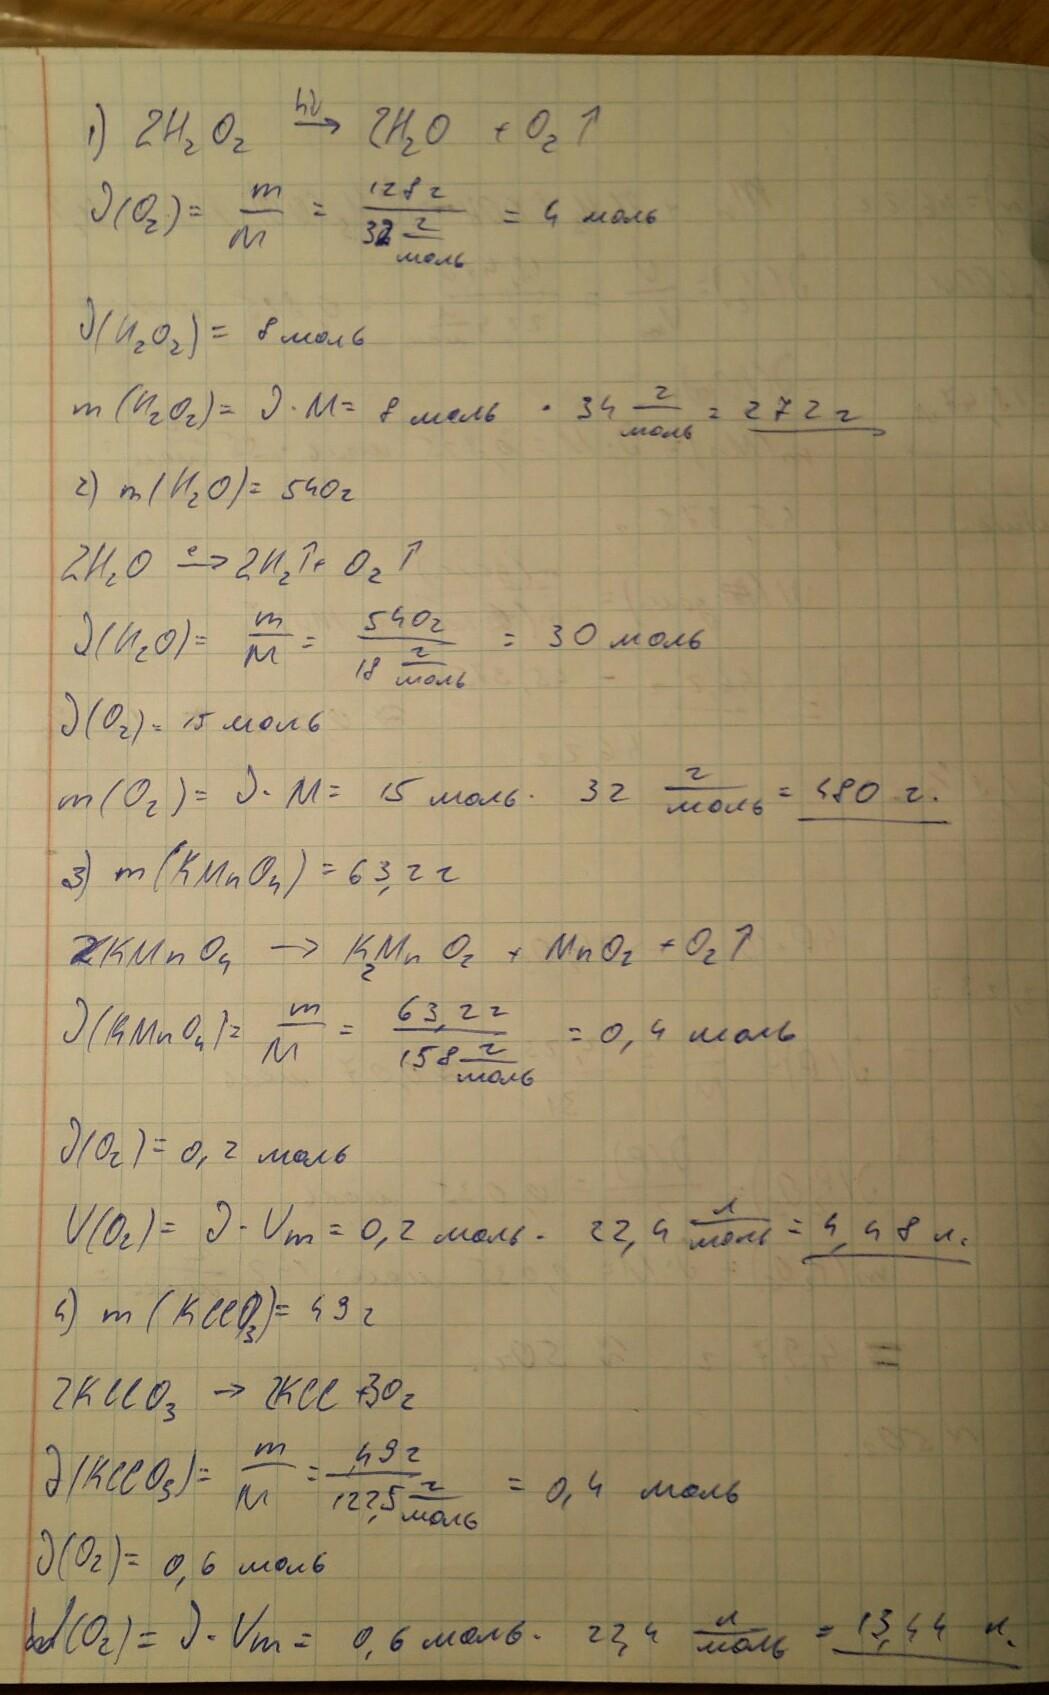 1) 2H₂O₂ hν→ 2H₂O + O₂↑
ν(O₂) = m/M = 128г / 32 г/моль = 4 моль
ν(H₂O₂) = 8 моль
m(H₂O₂) = ν · M = 8 моль · 34 г/моль = 272 г
2) m(H₂O) = 540г
2H₂O e→ 2H₂↑ + O₂↑
ν(H₂O) = m/M = 540г / 18 г/моль = 30 моль
ν(O₂) = 15 моль
m(O₂) = ν · M = 15 моль · 32 г/моль = 480 г.
3) m(KMnO₄) = 63,2 г
2KMnO₄ → K₂MnO₂ + MnO₂ + O₂↑
ν(KMnO₄) = m/M = 63,2г / 158 г/моль = 0,4 моль
ν(O₂) = 0,2 моль
V(O₂) = ν · Vm = 0,2 моль · 22,4 л/моль = 4,48 л.
4) m(KClO₃) = 49 г
2KClO₃ → 2KCl + 3O₂
ν(KClO₃) = m/M = 49г / 122,5 г/моль = 0,4 моль
ν(O₂) = 0,6 моль
(O₂) = ν · Vm = 0,6 моль · 22,4 л/моль = 13,44 л.